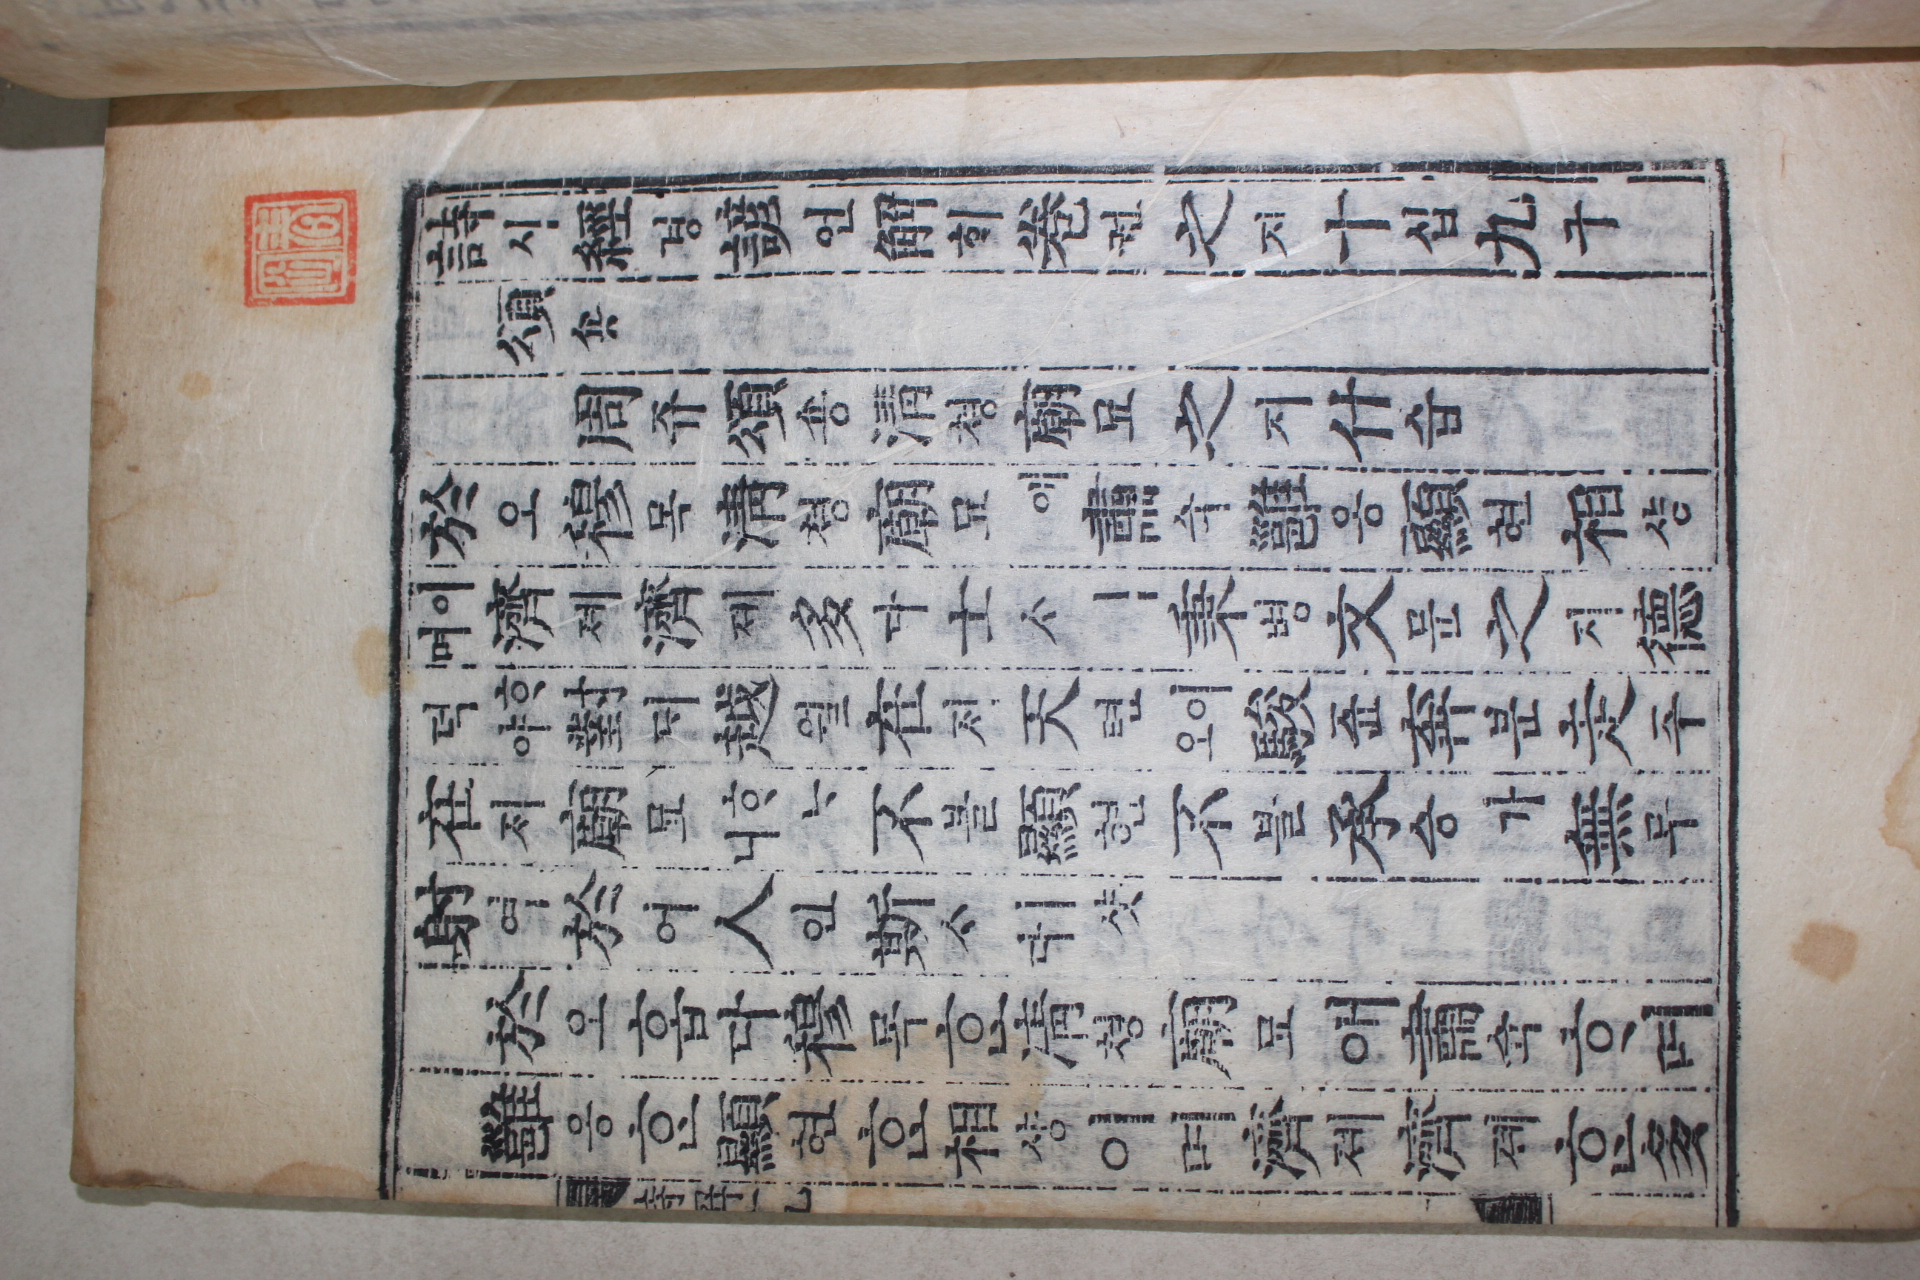 詩시經경諺언解ᄒᆡ卷권之지十십九구
頌숑
周쥬頌숑淸쳥廟묘之지什습
於오穆목淸쳥廟묘애肅슉雝옹顯현相샹
이며濟졔濟졔多다士ᄉᆞㅣ秉병文문之지德
덕ᄒᆞ야對ᄃᆡ越월在ᄌᆡ天텬이오駿쥰奔분走주
在ᄌᆡ廟묘ᄒᆞᄂᆞ니不블顯현不블承승가無무
射역於어人인斯ᄉᆞㅣ샷다
於오홉다穆목ᄒᆞᆫ淸쳥廟묘애肅슉ᄒᆞ며
雝옹ᄒᆞᆫ顯현ᄒᆞᆫ相샹이며濟졔濟졔ᄒᆞᆫ多